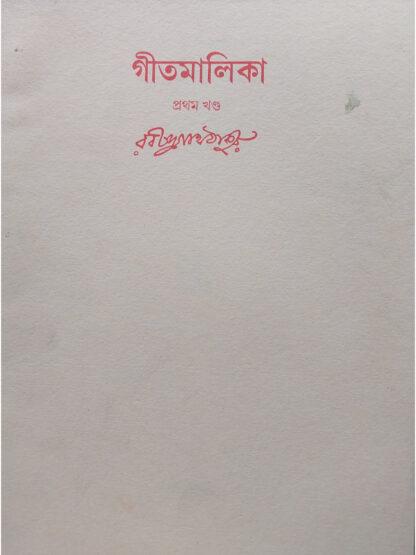 গীতমালিকা
প্রথম খণ্ড
রবীন্দ্রনাথ ঠাকুর